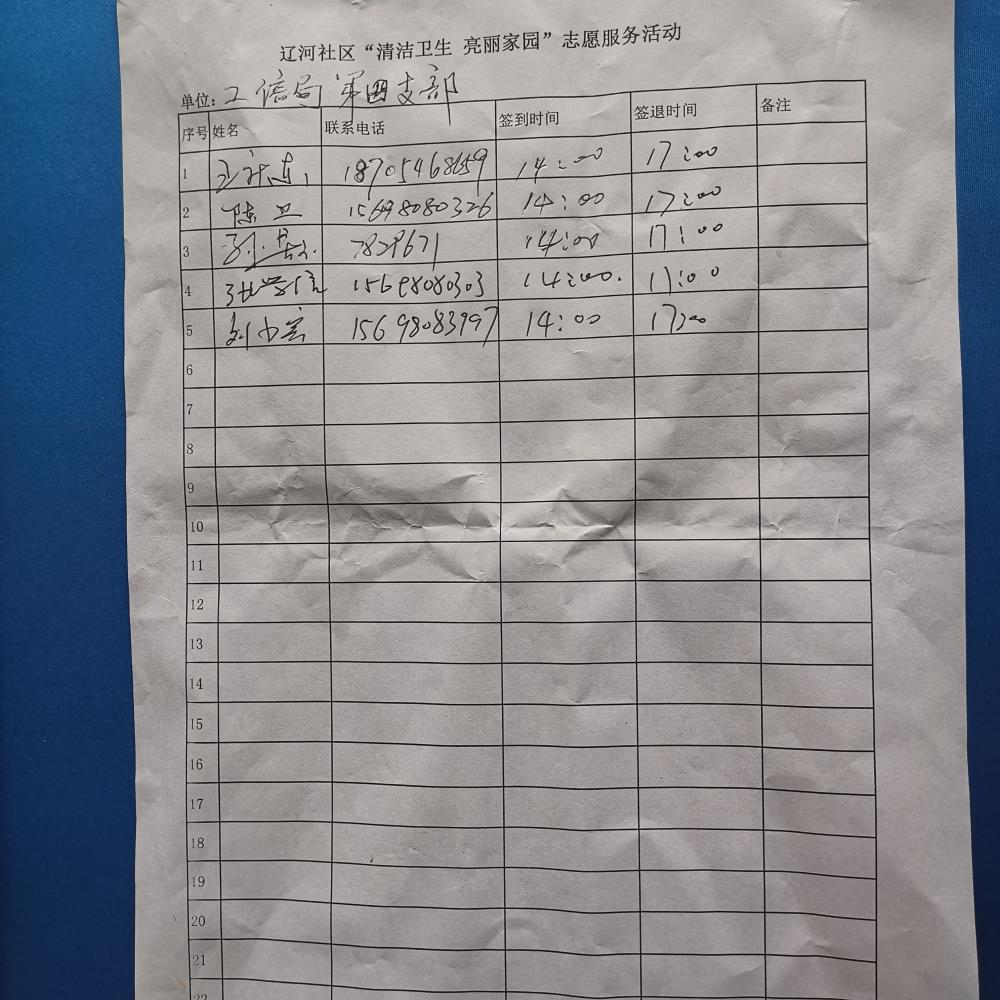 辽河社区“清洁卫生 亮丽家园”志愿服务活动
单位：工信局第四支部
序号 姓名 联系电话 签到时间 签退时间 备注
1 14:00 17:00
2 陈卫 15698080326 14:00 17:00
3 7829671 14:00 17:00
4 张学信 15698080303 14:00. 17:00
5 刘小宏 15698083997 14:00 17:00
6
7
8
9
10
11
12
13
14
15
16
17
18
19
20
21
22